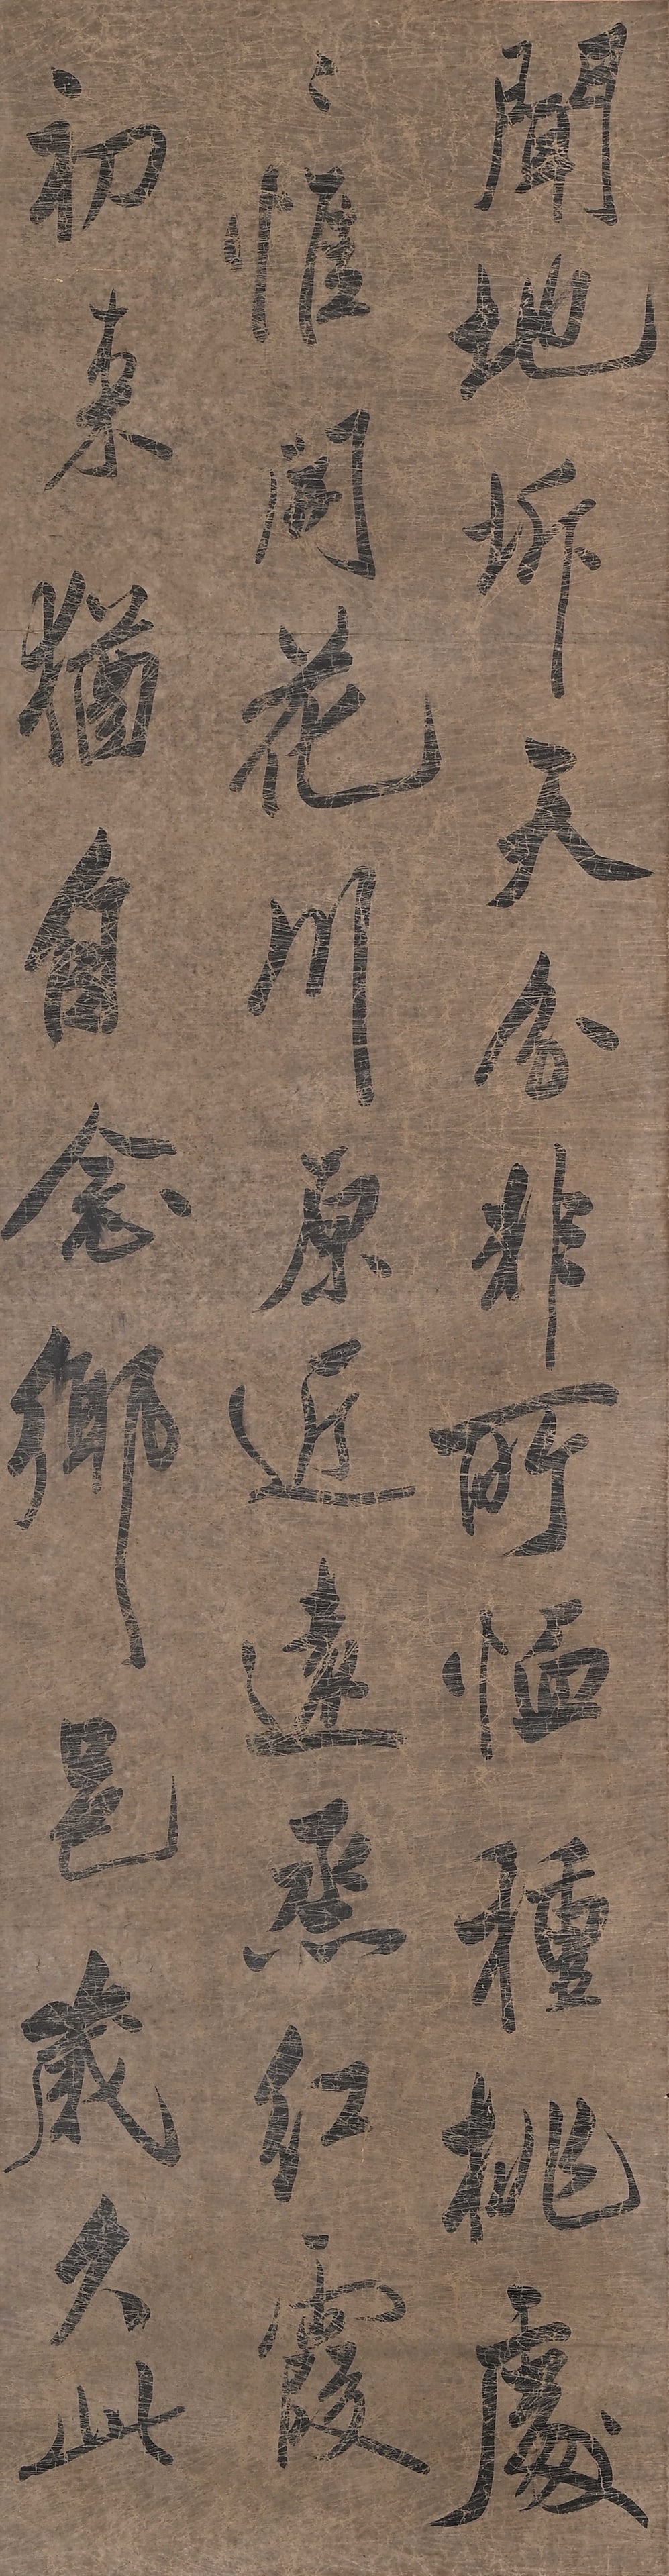 聞地坼天分非所恤種桃處
〻惟開花川原近遠烝紅霞
初來猶自念鄉邑歲久此